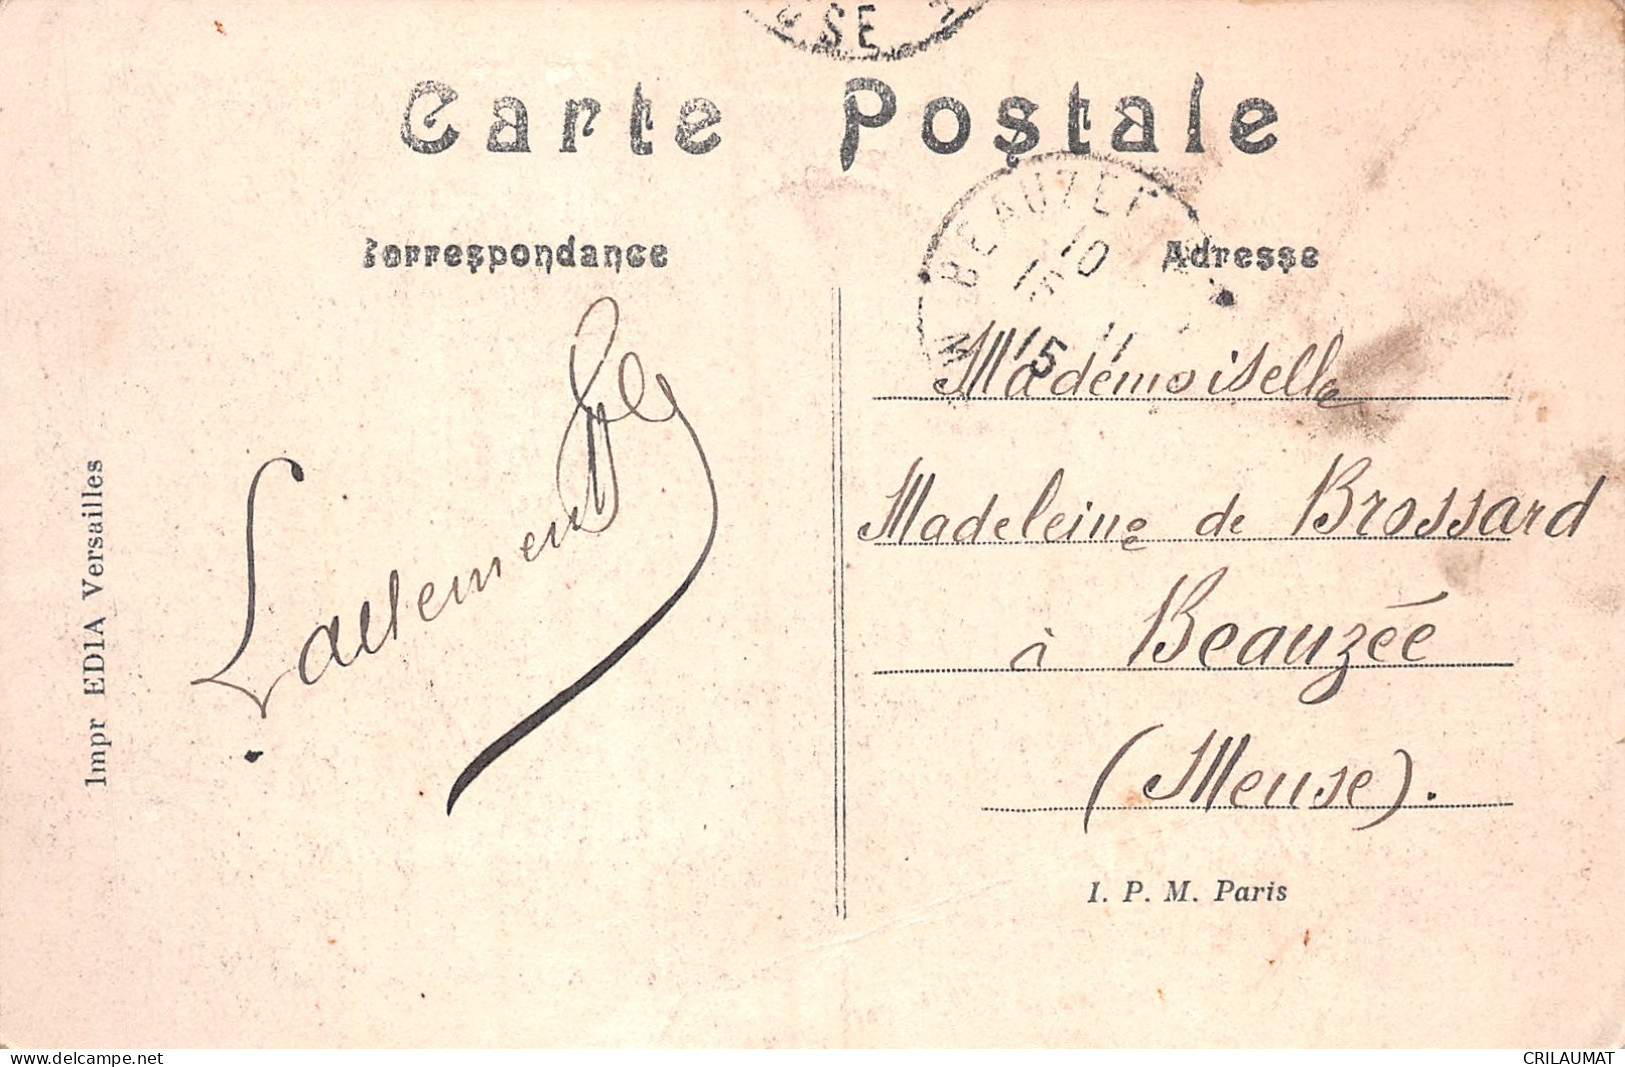 SE
Carte Postale
Correspondance
Adresse
BEAUZEE
10
15 11
Mademoiselle
Madeleine de Brossard
à Beauzée
(Meuse).
Lallement
Impr EDIA Versailles
I. P. M. Paris
delcampe.net
CRILAUMAT